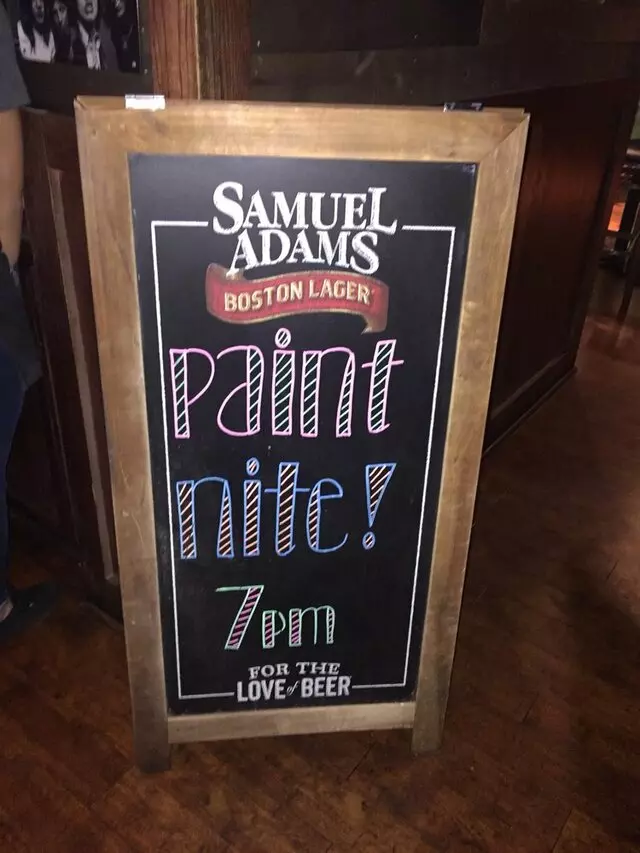 SAMUEL
ADAMS
BOSTON LAGER
paint
nite!
7pm
FOR THE
LOVE of BEER